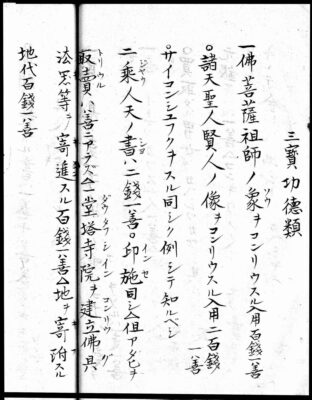 三寶功德類
一佛菩薩祖師ノ象ヲコンリウスル入用百錢一善
○諸天聖人賢人ノ像ヲコンリウスル入用二百錢一善
○サイコンシュフクヲスル同シク例シテ知ルベシ
二乘人天ノ書ハ二錢一善○印施同シ△但アダヒヲ
取賣ハ善ニアラズ△一堂塔寺院ヲ建立佛具
法器等ヲ寄進スル百錢一善△地ヲ寄附スル
地代百錢一善